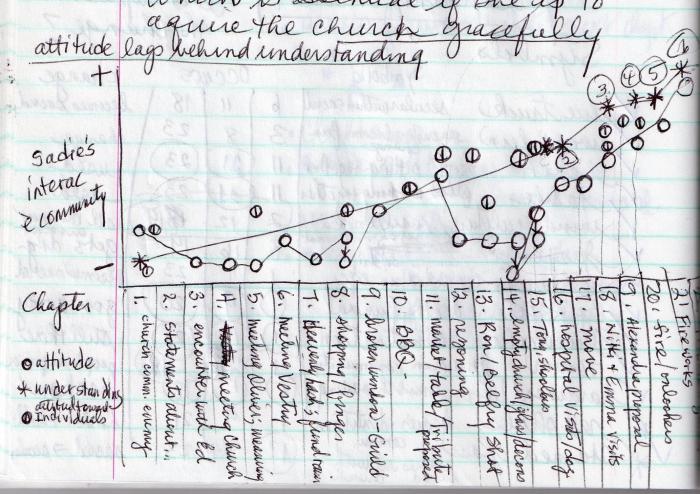 aquire the church gracefully
attitude lags behind understanding
+
Sadie's
interac
c̄ community
-
Chapter
attitude
* understanding
attitude toward
Individuals
1. church comm. enemy
2. statements about...
3. encounter with Ed
4. meeting church
5. meeting Oliver; meaning
6. meeting Vestry
7.
8. shopping/fringes
9. (broken window)-Guild
10. BBQ -
11. market/talk/Tribute
proposed
12. reasoning
13. Ron/Belfry Shot
14. empty church/glass/deacons
15. Tom, shoebox
16. hospital visits/dog
17. move
18 Nikki & Emma visits
19. Alexandria proposal
20. fire/onlookers
21 Fireworks
1
2
3
4
5